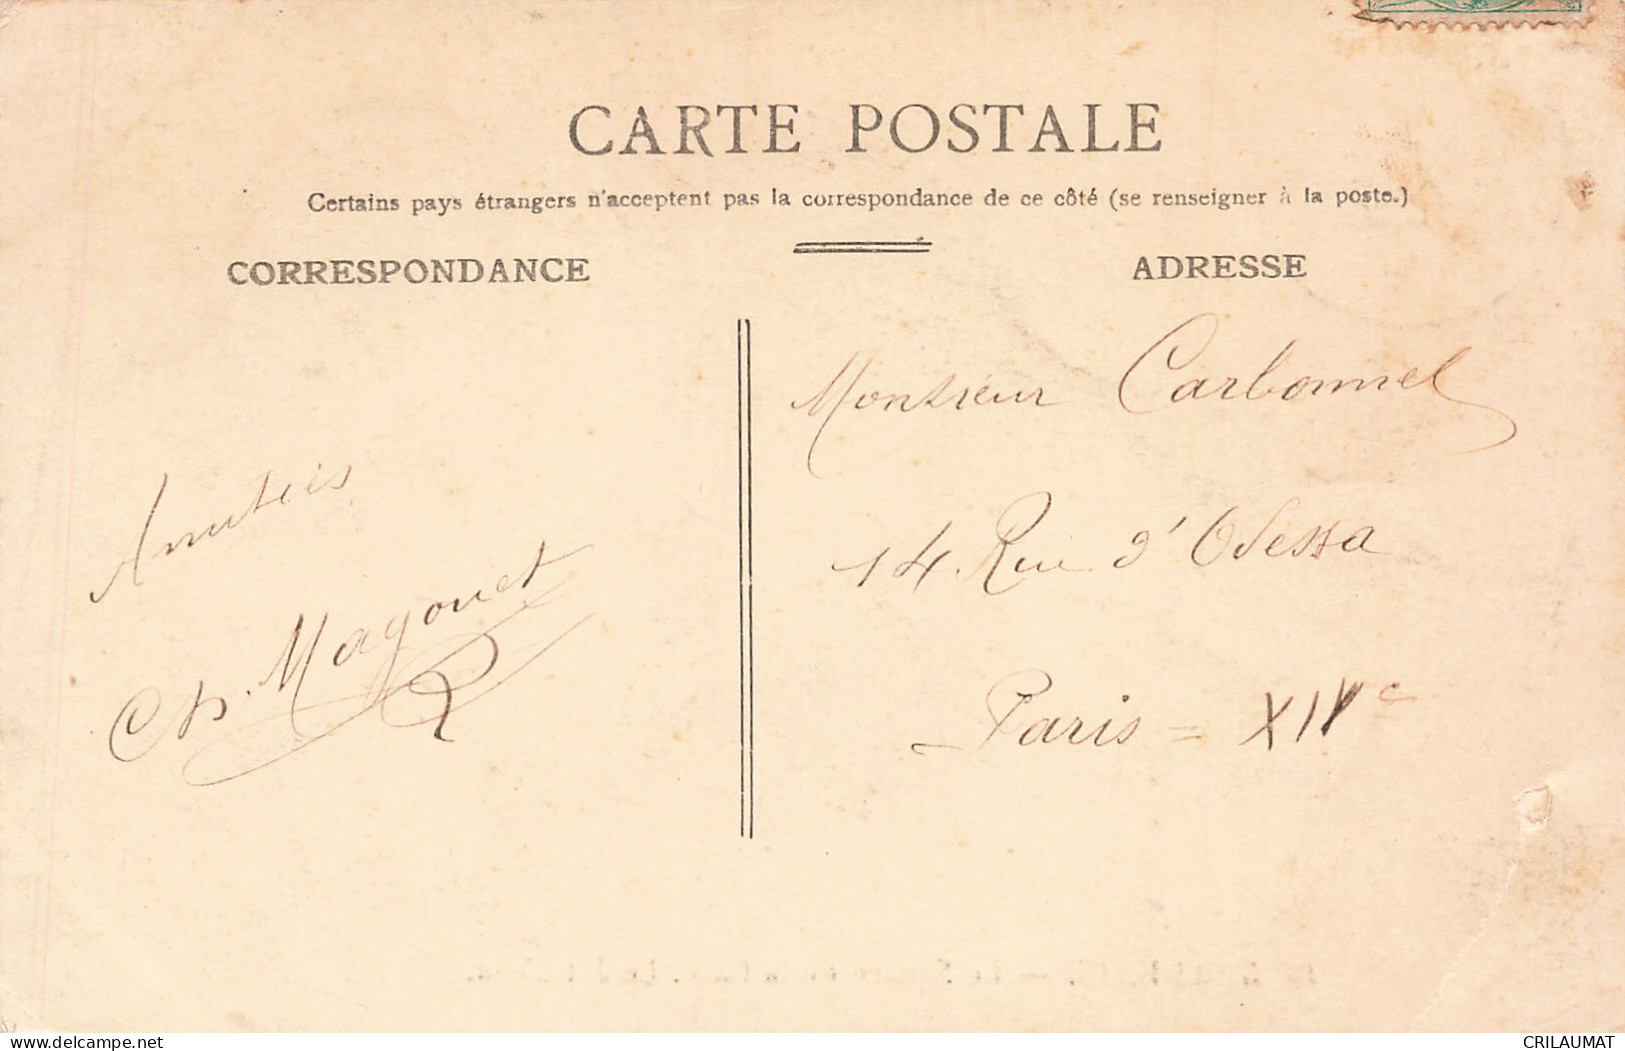 CARTE POSTALE
Certains pays étrangers n'acceptent pas la correspondance de ce côté (se renseigner à la poste.)
CORRESPONDANCE
ADRESSE
Amitiés
Ch. Magouet
Monsieur Carbonnel
14 Rue d'Odessa
Paris = XIVe
www.delcampe.net
CRILAUMAT